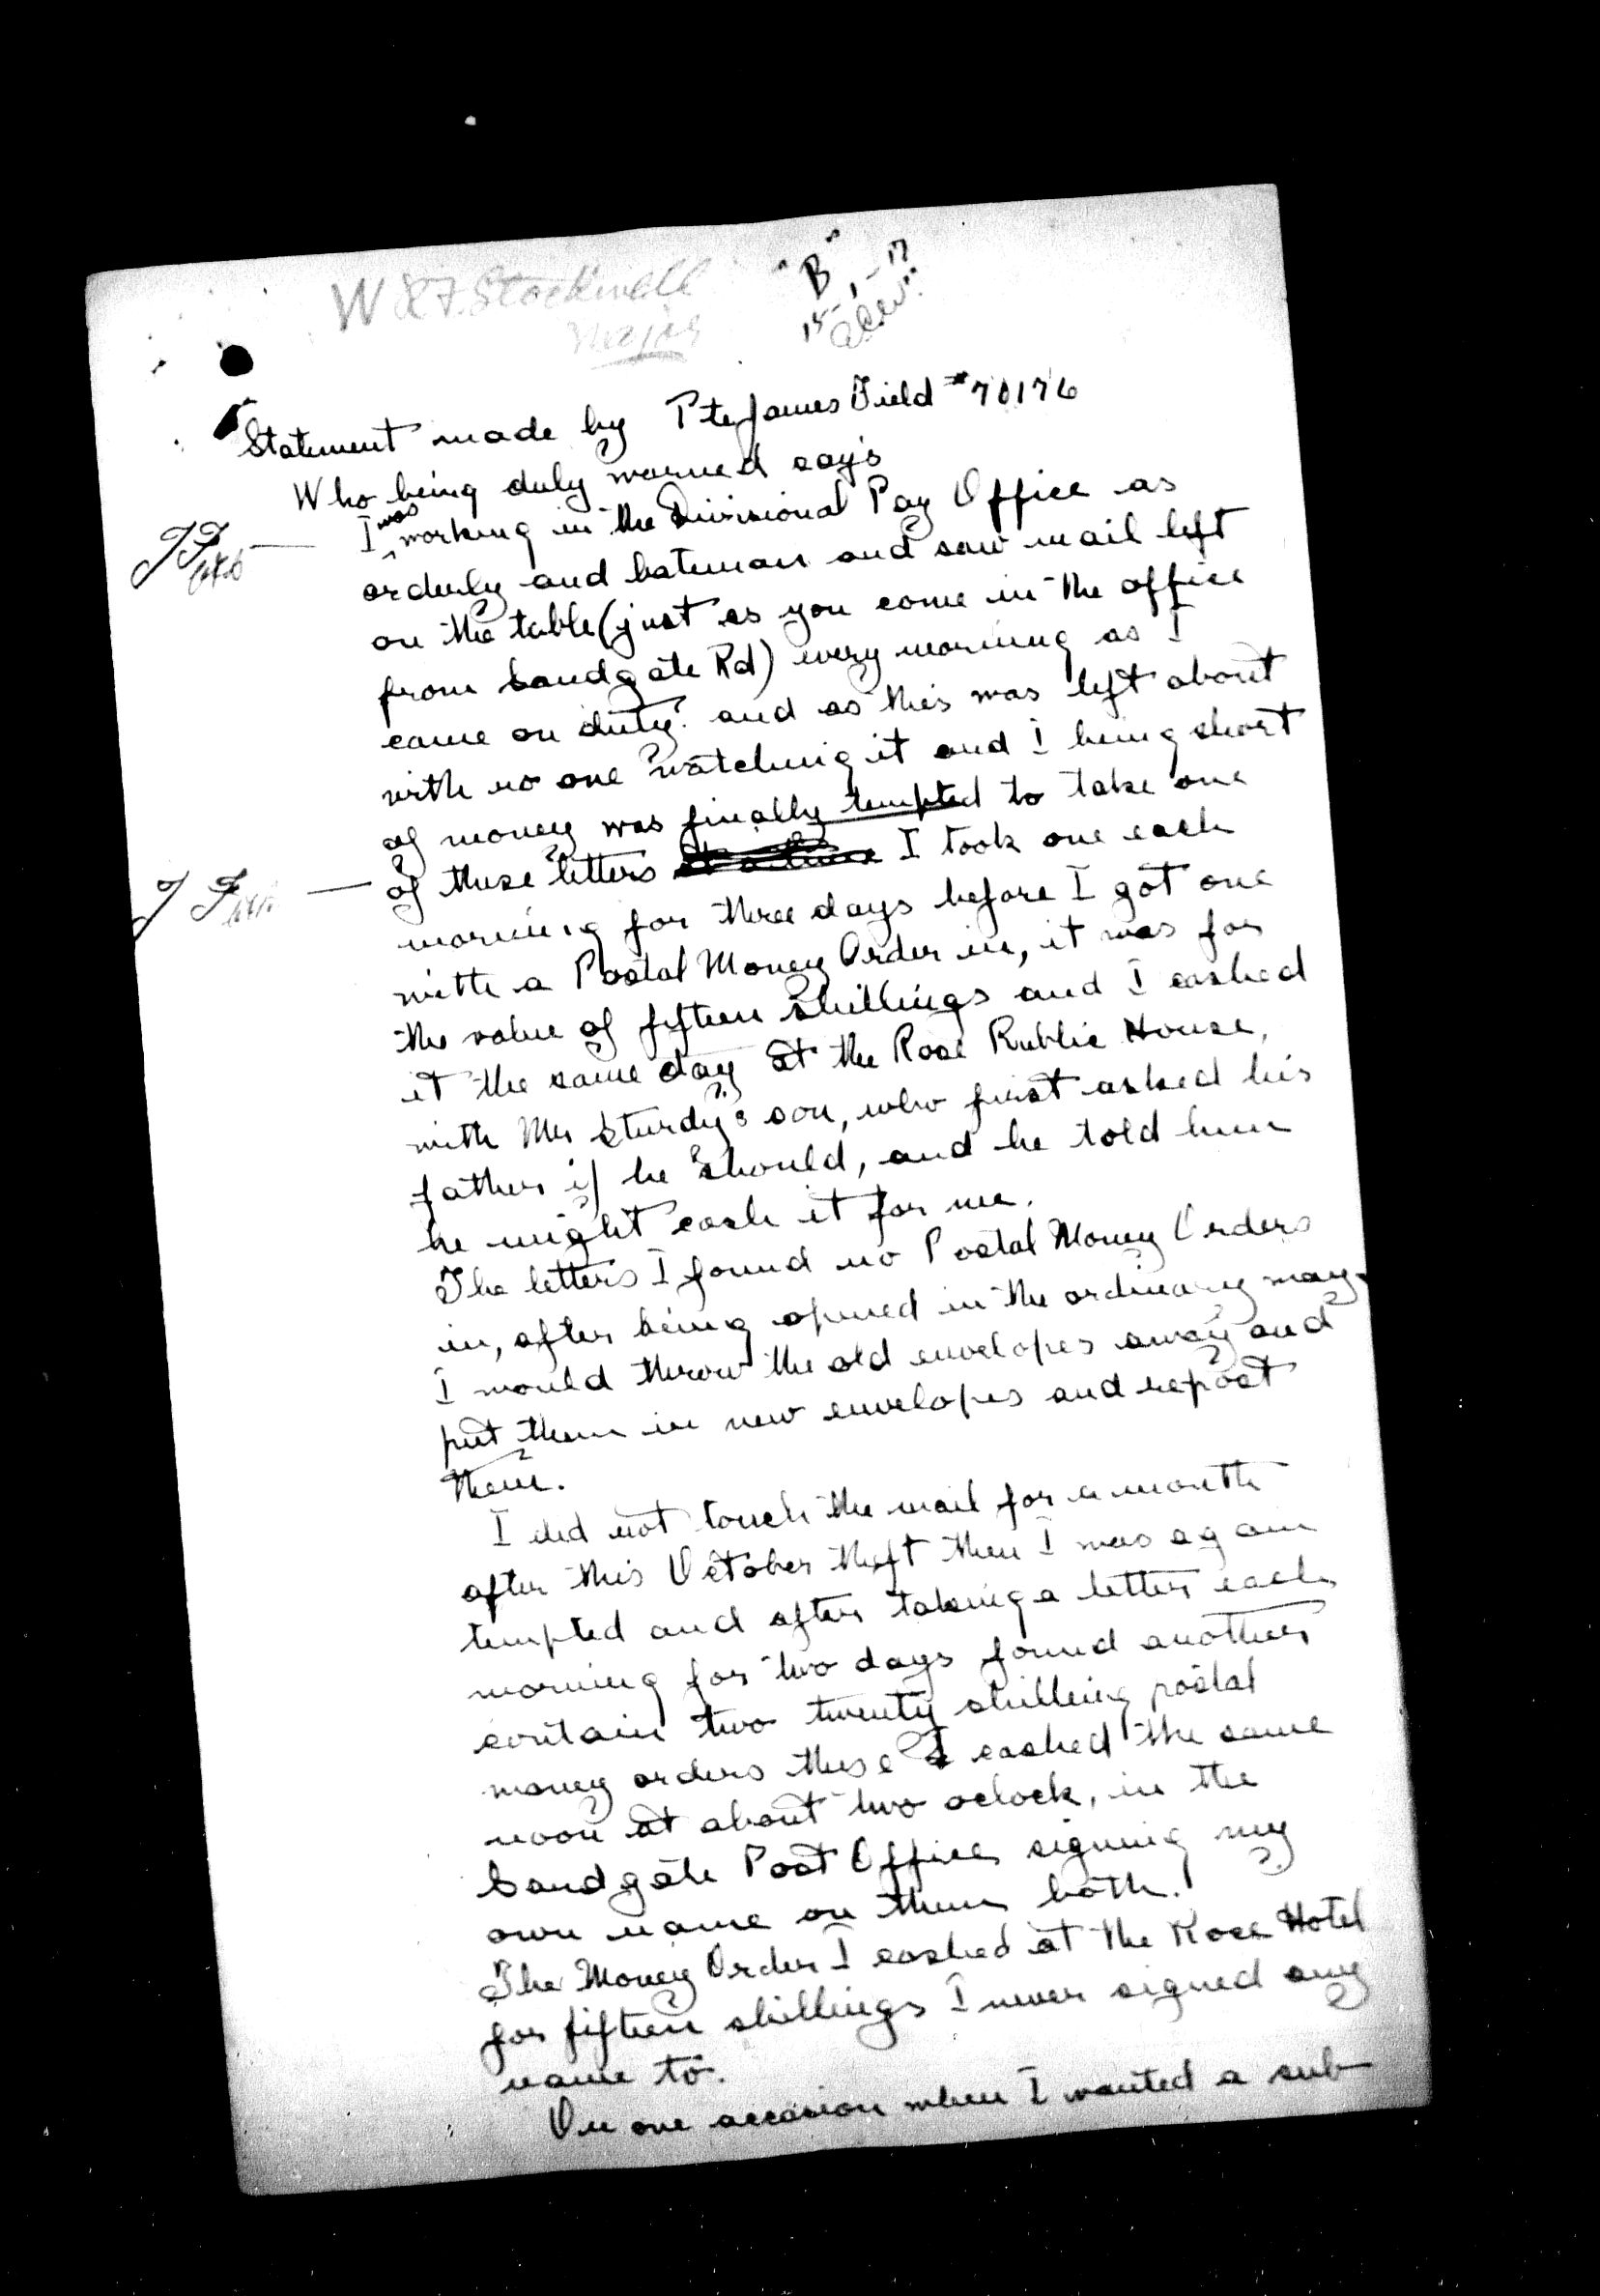 W & F. Stockwell
Major
"B"
15-1-17
Statement made by Pte James Field #70176
Who being duly warned says
J F
I was working in the Divisional Pay Office as
orderly and bateman and saw mail left
on the table (just as you come in the office
from Sandgate Rd) every morning as I
came on duty. and as this was left about
with no one watching it and I being short
of money was finally tempted to take one
J F
of these letters I took one each
morning for three days before I got one
with a Postal Money Order in, it was for
the value of fifteen shillings and I cashed
it the same day at the Rose Public House,
with Mr Sturdy's son, who first asked his
father if he should, and he told him
he might cash it for me.
The letters I found no Postal Money Orders
in, after being opened in the ordinary way.
I would throw the old envelopes away and
put them in new envelopes and repost
them.
I did not touch the mail for a month
after this October theft then I was again
tempted and after taking a letter each
morning for two days found another
contain two twenty shilling postal
money orders these I cashed the same
noon at about two oclock, in the
Sandgate Post Office signing my
own name on them both.
The Money Order I cashed at the Rose Hotel
for fifteen shillings I never signed any
name to.
On one occasion when I wanted a sub